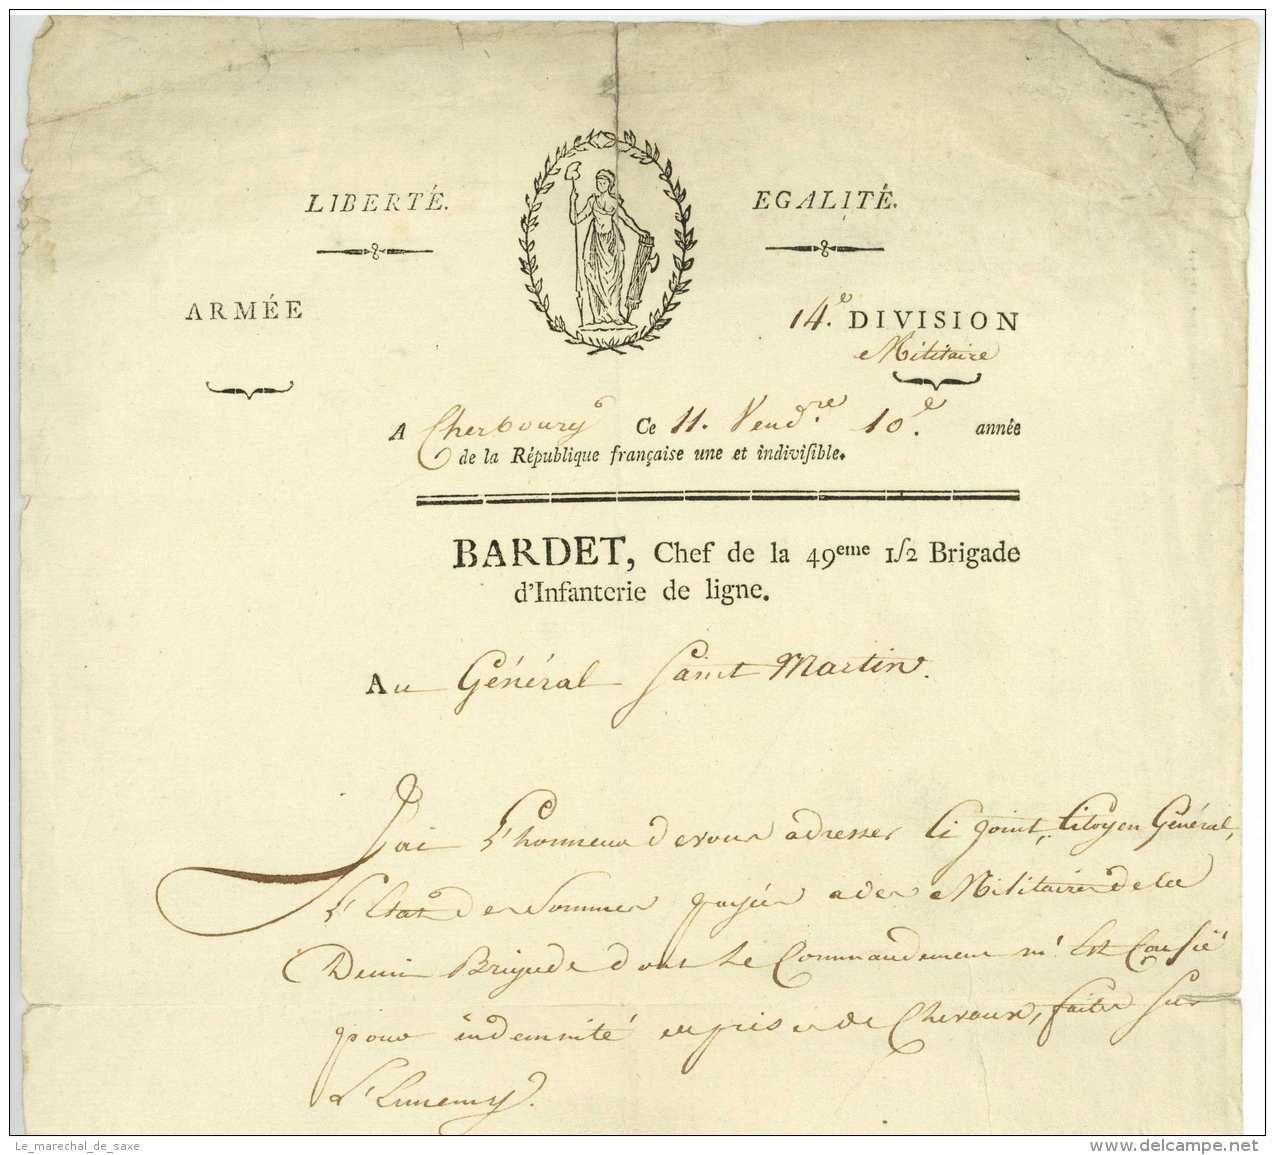 LIBERTÉ. EGALITÉ.
ARMÉE 14.e DIVISION
Militaire
A Cherbourg Ce 11. Vend.re 10.e année
de la République françaiſe une et indiviſible.
BARDET, Chef de la 49eme 1/2 Brigade
d'Infanterie de ligne.
Au Général Saint Martin.
J'ai l'honneur de vous adresser Ci joint, Citoyen Général,
l'Etat des Sommes payées a des Militaires de la
Demi Brigade dont le Commandement m'est Confié
pour indemnité en prises de Chevaux, faites sur
L'Ennemy.
Le_marechal_de_saxe
www.delcampe.net